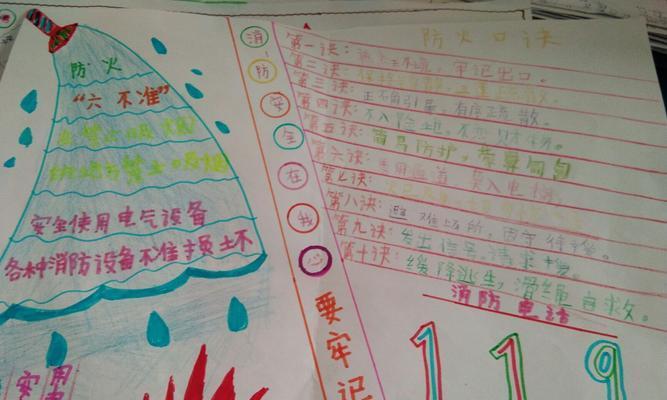 防火
“六不准”
安全使用电气设备
各种消防设备不准损坏
实用
消防安全在我心
要牢记
防火口诀
第一诀：熟悉环境，牢记出口。
第二诀：
第三诀：正确引导，有序疏散。
第四诀：不入险地，不恋财物。
第五诀：简易防护，蒙鼻匍匐
第六诀：善用通道，莫入电梯。
第七诀：
第八诀：避难场所，固守待援。
第九诀：发出信号，请求援。
第十诀：缓降逃生，滑绳自救。
消防电话
119